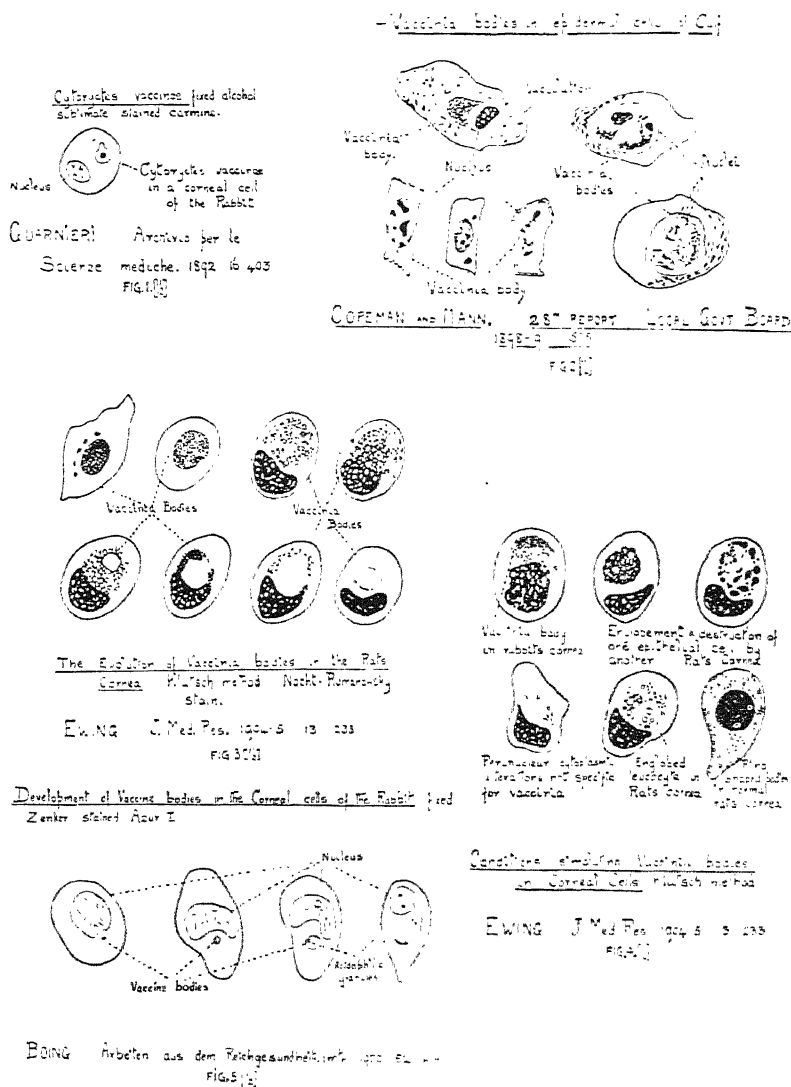 Cytoryctes vaccinae fixed alcohol
sublimate stained carmine.
Nucleus
Cytoryctes vaccinae
in a corneal cell
of the Rabbit
GUARNIERI Archivio per le
Scienze mediche. 1892 16 403
FIG. 1.
Vaccinia bodies in epidermal cells of Calf
Vacuolation
Vaccinia
body.
Nucleus
Vaccinia
bodies
Nuclei
Vaccinia body
COPEMAN AND MANN. 28TH REPORT LOCAL GOVT BOARD
1898-9
FIG. 2
Vaccinia Bodies
Vaccinia
Bodies
The Evolution of Vaccinia bodies in the Rats
Cornea Klatsch method Nocht-Romanovsky
stain.
EWING J. Med. Res. 1904-5 13 233
FIG. 3
Vaccinia body
in rabbits cornea
Englobement & destruction of
one epithelial cell by
another Rats Cornea
Perinuclear cytoplasmic
alterations not specific
for vaccinia
Englobed
leucocyte in
Rats cornea
in normal
rats cornea
Conditions simulating Vaccinia bodies
in Corneal Cells Klatsch method
EWING J. Med Res 1904 5 3 233
FIG. 4
Development of Vaccine bodies in the Corneal cells of the Rabbit fixed
Zenker stained Azur I
Nucleus
Vaccine bodies
Acidophilic
granules
BOING Arbeiten aus dem Reichgesundheitsamte
FIG. 5